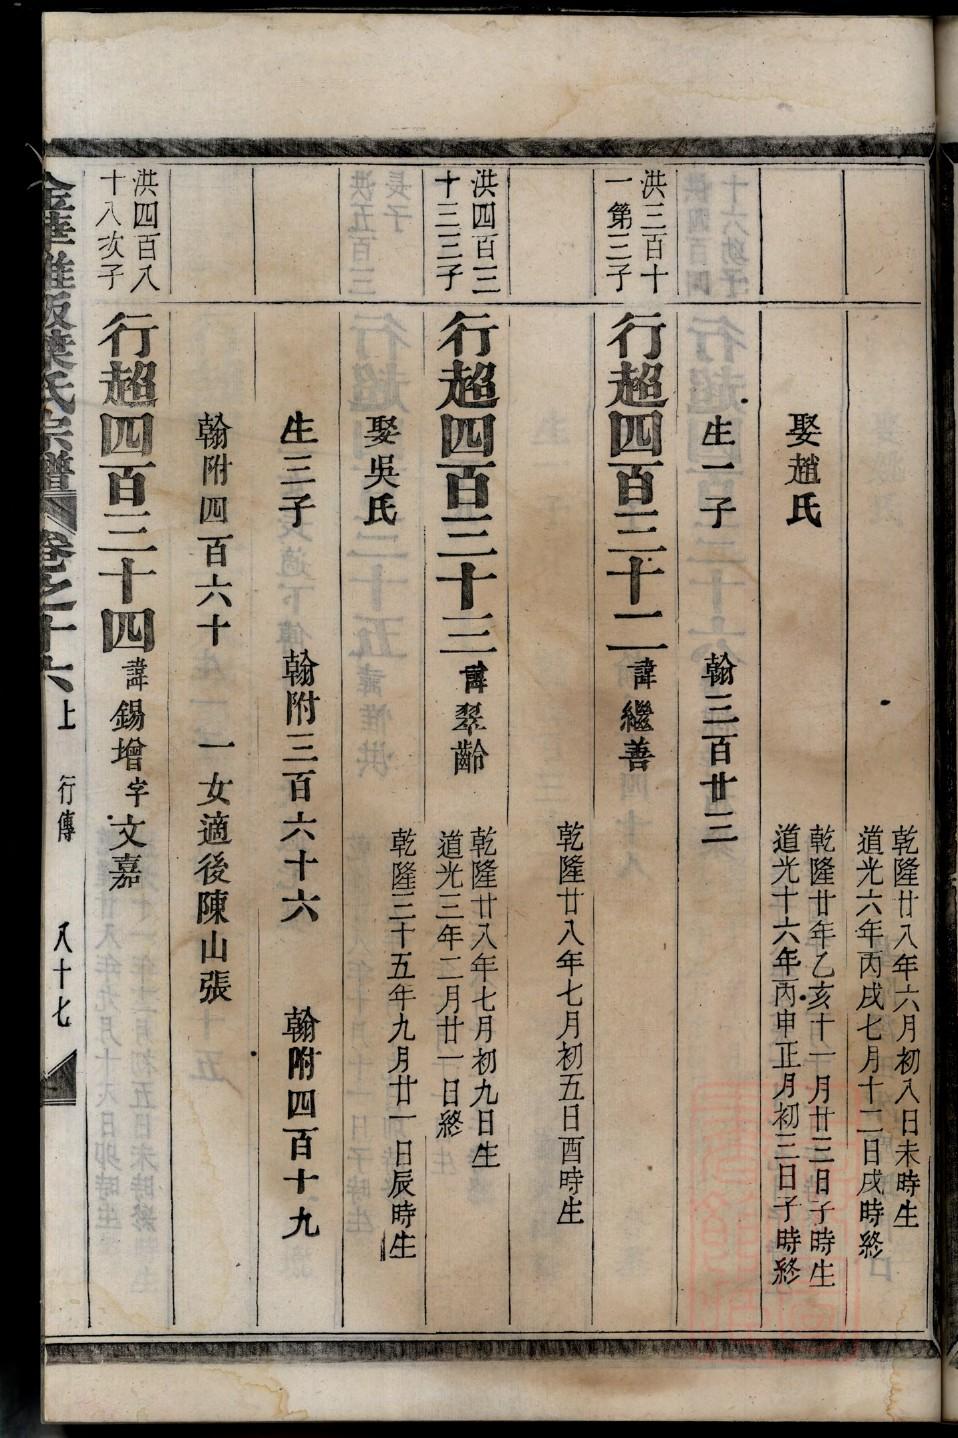 乾隆廿八年六月初八日未時生
道光六年丙戌七月十二日戌時終
娶趙氏
乾隆廿年乙亥十一月廿三日子時生
道光十六年丙申正月初三日子時終
生一子
翰三百廿三
洪三百十
一第三子
行超四百三十二
諱繼善
乾隆廿八年七月初五日酉時生
洪四百三
十三三子
行超四百三十三
諱翠齡
乾隆廿八年七月初九日生
道光三年二月廿一日終
娶吳氏
乾隆三十五年九月廿一日辰時生
生三子
翰附三百六十六
翰附四百十九
翰附四百六十
一女適後陳山張
洪四百八
十八次子
行超四百三十四
諱錫增字文嘉
金華雅畈葉氏宗譜
卷之十六上
行傳
八十七